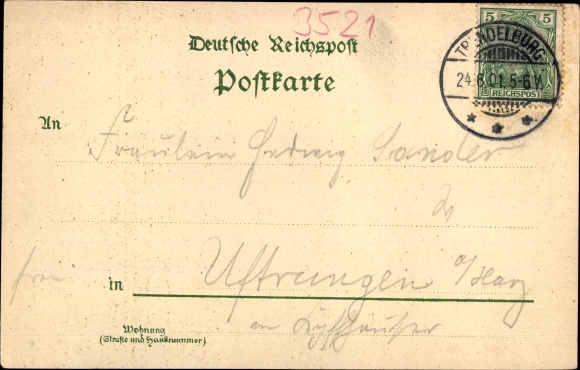 3521
Deutsche Reichspost
Postkarte
5 5
REICHSPOST
TRENDELBURG
24.6.01.5-6V.
An Fräulein Hedwig Sander
frei in Uftrungen a/Harz
am Kyffhäuser
Wohnung
(Straße und Hausnummer)